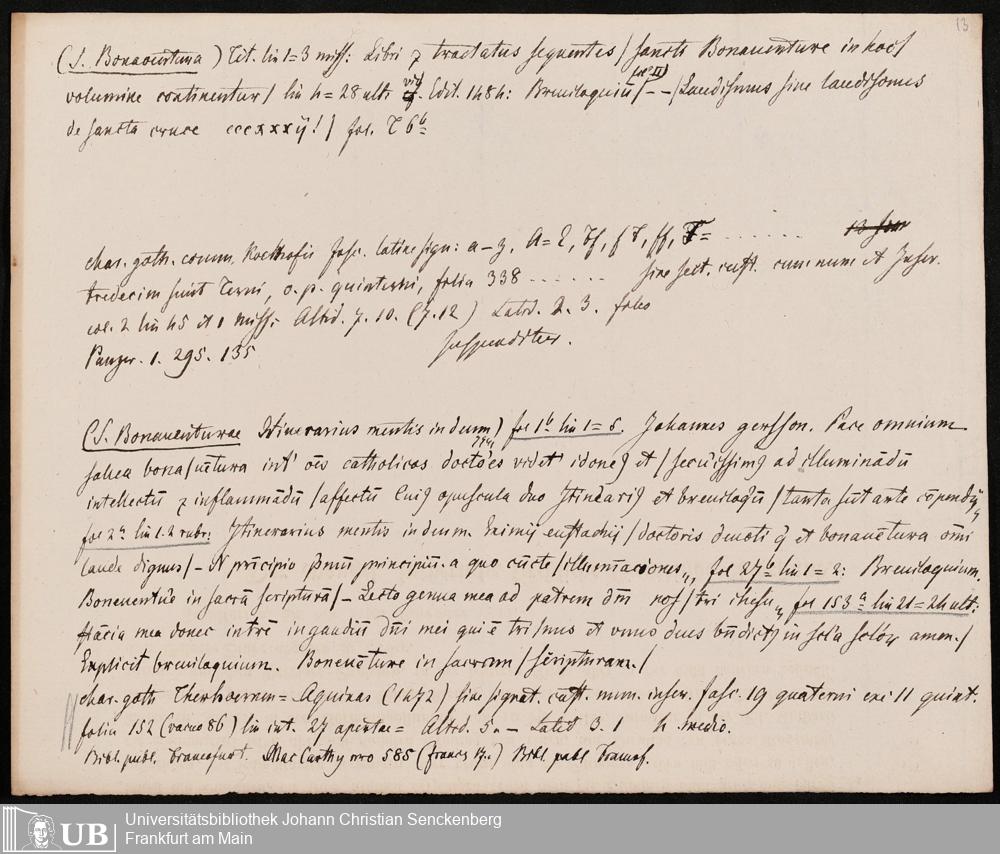 13
(S. Bonaventura) Tit. lin 1=3 miss: Libri & tractatus sequentes / sancti Bonauenture in hoc /
volumine continentur / lin 4=28 ult: Edit. 1484: Breuiloquiū / – – / Laudismus siue laudisonus
de sancta cruce cccxxxij! / fos. T 6b
char. goth. comm. fasc. latine sign: a–z, A=
tredecim sunt terni, o. p. quinterni, folia 338 . . . . . . sine sect. cust. cum num et Inscr.
col. 2 lin 45 et 1 miss: Altid. 7. 10. (7. 12) Latid. 3. folio
Panzer. 1. 295. 135 suspenditur.
(S. Bonauenturae Itinerarius mentis in deum) fol 1b lin 1=6. Johannes gersson. Pace omnium
salua bona / uētura int' oēs catholicos doctōes videt' idone9 et / secu'issim9 ad illuminādū
intellectū & inflammādū / affectū Cui9 opuscula duo Itinerari9 et breuiloq̄ū / tanta sūt arte cōpendij
fol 2a lin 1.2 rubr: Itinerarius mentis in deum. Eximij eustachij / doctoris deuoti q̄ et bonauētura om̄i
laude dignus / – principio prīcipiū. a quo cūcte / illumīaciones, fol 27b lin 1=2: Breuiloquium.
Bonauentur'e in sacrā scripturā / – Flecto genua mea ad patrem dn̄i nos / tri ihesu, fol 153a lin 21=24 ult:
fiācia mea donec intrē in gaudiū dn̄i mei qui ē tri / nus et vnus deus bn̄dict9 in amen. /
Explicit breuiloquium. Bonauēture in sacram / scripturam. /
char. goth Therhoernen= Aquinas (1472) sine signat. cust. num. inscr. fasc. 19 quaterni exc 11 quint.
folia 152 (vacuo 86) lin int. 27 apertae= Altid. 5. – Latid 3. 1 h. medio.
Bibl. publ. francofurt. MacCarthy nro 585 (francs 17.) Bibl. publ francof.
UB Universitätsbibliothek Johann Christian Senckenberg
Frankfurt am Main